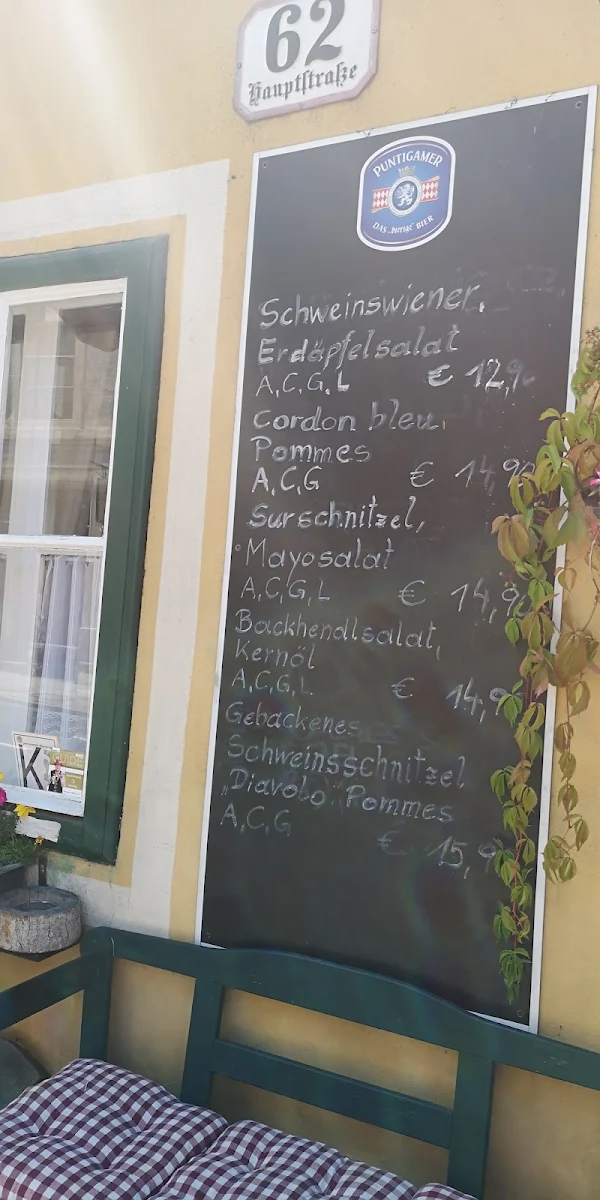 62
Hauptstraße
PUNTIGAMER
DAS „bierige“ BIER
Schweinswiener,
Erdäpfelsalat
A,C,G,L € 12,90
Cordon bleu,
Pommes
A,C,G € 14,90
Surschnitzel,
Mayosalat
A,C,G,L € 14,90
Backhendlsalat,
Kernöl
A,C,G,L € 14,9
Gebackenes
Schweinsschnitzel
„Diavolo“ Pommes
A,C,G
€ 15,9
K
GUIDE